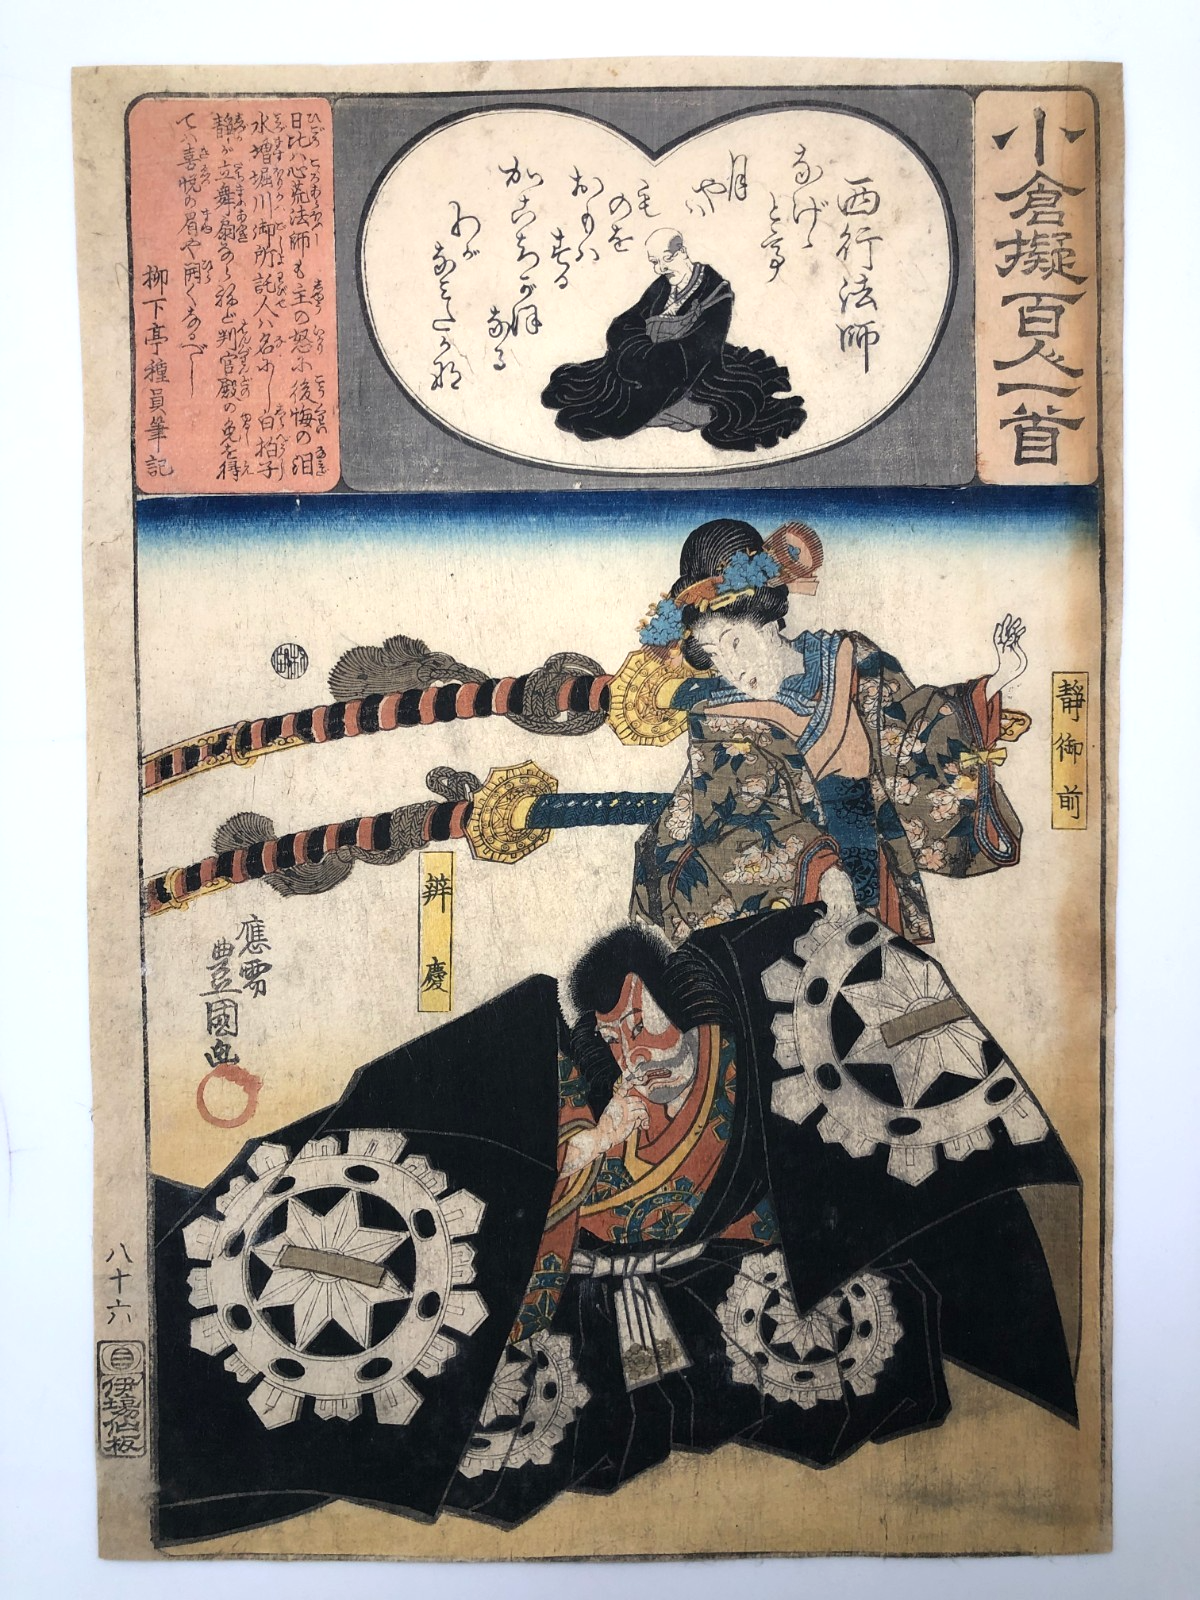 小倉擬百人一首
西行法師
なげゝ
とて
月
やは
ものを
おもは
する
かこちがほ
なる
わが
なみだかな
日比ハ心荒法師も主の怒に後悔の泪
水増堀川御所詫人ハ名にし白拍子
静が立舞扇ならねど判官殿の免を得
てハ喜悦の眉や開くなるべし
柳下亭種員筆記
静御前
辨慶
應需
豊國画
八十六
伊場仙板